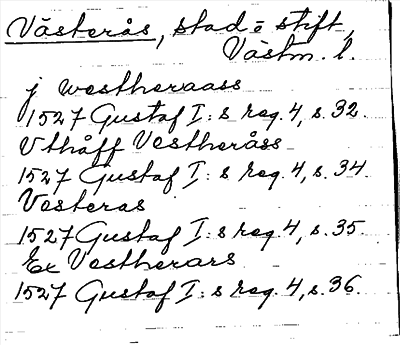 Västerås, stad o stift,
Västm. l.
j westheraass
1527 Gustaf I:s reg. 4, s. 32.
Vthåff Vestheråss
1527 Gustaf I:s reg. 4, s. 34.
Vesteras
1527 Gustaf I:s reg. 4, s. 35.
Ex Vestherars
1527 Gustaf I:s reg. 4, s. 36.